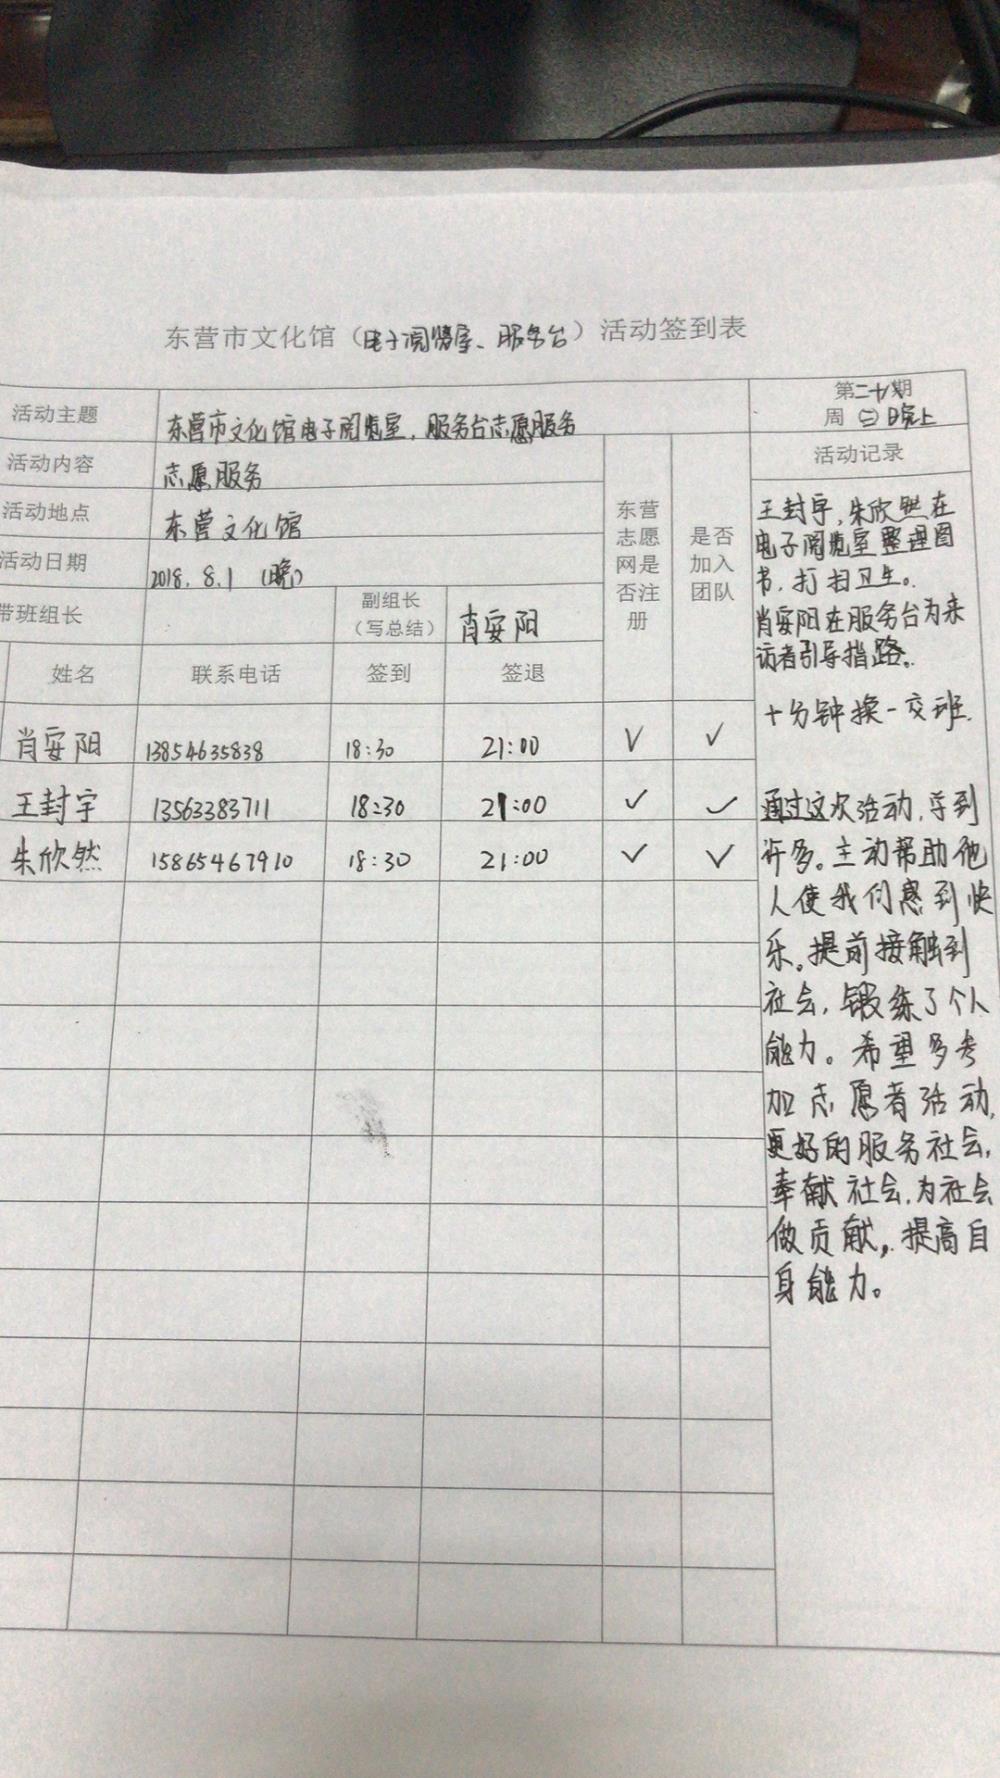 东营市文化馆（电子阅览室、服务台）活动签到表
活动主题 东营市文化馆电子阅览室，服务台志愿服务
第二十八期
周（三）晚上
活动内容 志愿服务
活动地点 东营文化馆
活动日期 2018.8.1（晚）
带班组长 副组长（写总结） 肖安阳
东营志愿网是否注册
是否加入团队
活动记录
姓名 联系电话 签到 签退
肖安阳 13854635838 18:30 21:00 √ √
王封宇 13563383711 18:30 21:00 √ √
朱欣然 15865467910 18:30 21:00 √ √
王封宇，朱欣然在
电子阅览室整理图
书，打扫卫生。
肖安阳在服务台为来
访者引导指路。
十分钟换一交班.
通过这次活动，学到
许多。主动帮助他
人使我们感到快
乐。提前接触到
社会，锻练了个人
能力。希望多参
加志愿者活动，
更好的服务社会，
奉献社会，为社会
做贡献，提高自
身能力。